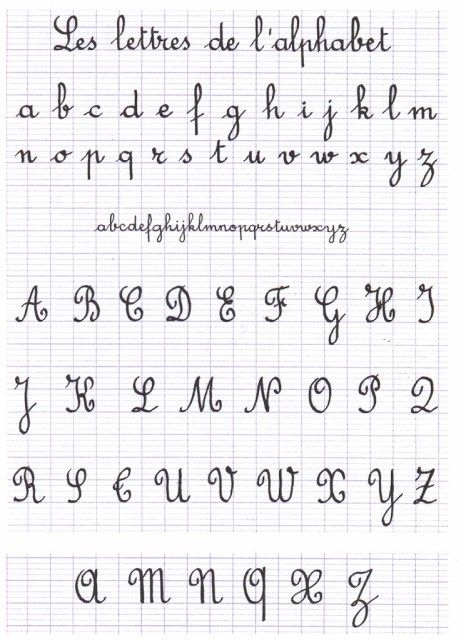 Les lettres de l'alphabet
a b c d e f g h i j k l m
n o p q r s t u v w x y z
abcdefghijklmnopqrstuvwxyz
A B C D E F G H I
J K L M N O P Q
R S T U V W X Y Z
A M N Q X Z